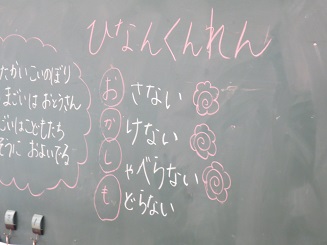 ひなんくんれん
おさない
かけない
しゃべらない
もどらない
たかいこいのぼり
まごいはおとうさん
ごいはこどもたち
そうにおよいでる